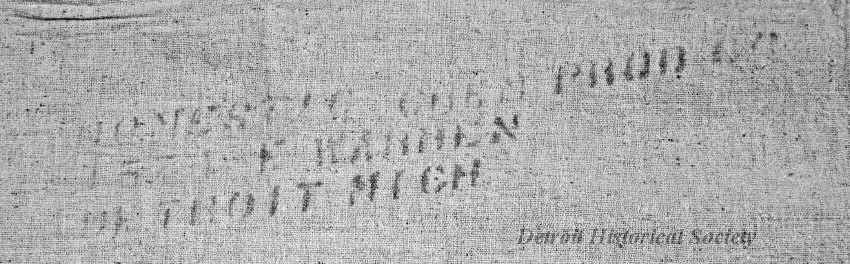 DOMESTIC PROD CO
E WARREN
DETROIT MICH
Detroit Historical Society